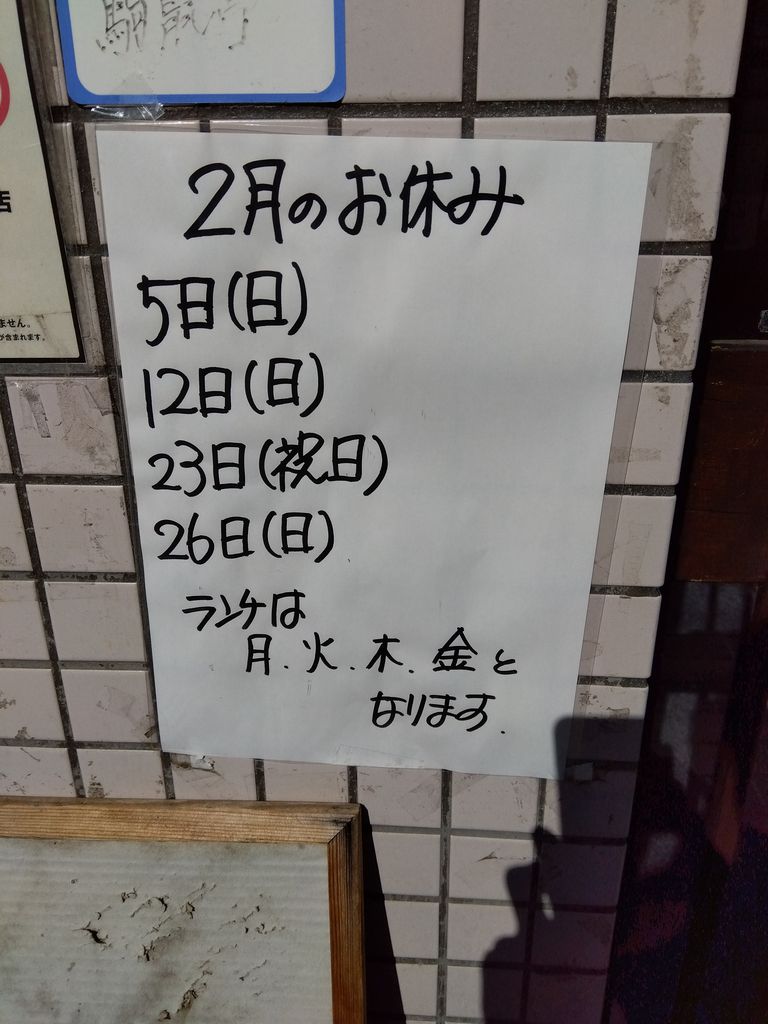 2月のお休み
5日(日)
12日(日)
23日(祝日)
26日(日)
ランチは
月.火.木.金と
なります.
店
ません。
が含まれます。